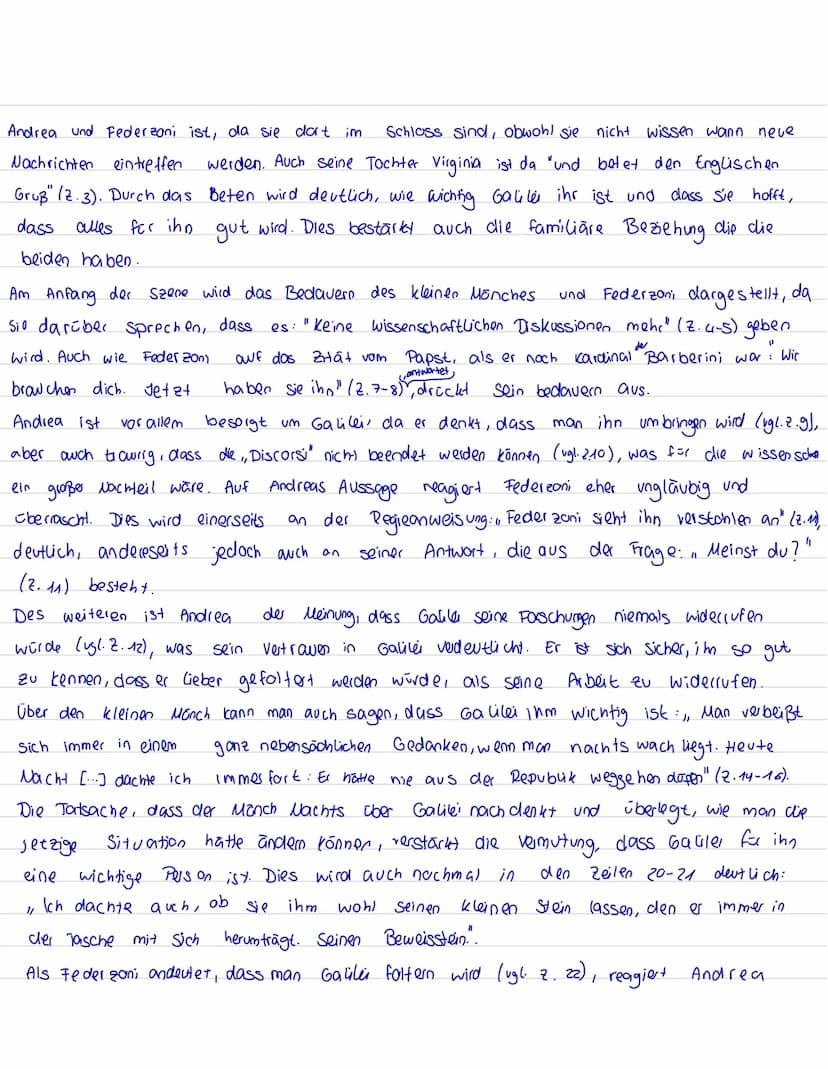 Andrea und Federzoni ist, da sie dort im Schloss sind, obwohl sie nicht wissen wann neue
Nachrichten eintreffen werden. Auch seine Tochter Virginia ist da "und betet den Englischen
Gruß" (Z.3). Durch das Beten wird deutlich, wie wichtig Galilei ihr ist und dass sie hofft,
dass alles für ihn gut wird. Dies bestärkt auch die familiäre Beziehung die die
beiden haben.
Am Anfang der Szene wird das Bedauern des kleinen Mönches und Federzoni dargestellt, da
sie darüber sprechen, dass es: "Keine wissenschaftlichen Diskussionen mehr" (Z.4-5) geben
wird. Auch wie Federzoni auf das Zitat vom Papst, als er noch Kardinal der Barberini war: "Wir
brauchen dich. Jetzt haben sie ihn" (Z.7-8) antwortet, drückt sein bedauern aus.
Andrea ist vor allem besorgt um Galilei, da er denkt, dass man ihn umbringen wird (vgl. Z.9),
aber auch traurig, dass die „Discorsi" nicht beendet werden können (vgl. Z10), was für die wissenscha
ein großer Nachteil wäre. Auf Andreas Aussage reagiert Federzoni eher ungläubig und
überrascht. Dies wird einerseits an der Regieanweisung: „Federzoni sieht ihn verstohlen an" (Z.11)
deutlich, andereseits jedoch auch an seiner Antwort, die aus der Frage: „Meinst du?"
(Z.11) besteht.
Des weiteren ist Andrea der Meinung, dass Galilei seine Forschungen niemals widerrufen
würde (vgl. Z.12), was sein Vertrauen in Galilei verdeutlicht. Er ist sich sicher, ihn so gut
zu kennen, dass er lieber gefoltert werden würde, als seine Arbeit zu widerrufen.
Über den kleinen Mönch kann man auch sagen, dass Galilei ihm wichtig ist: „Man verbeißt
sich immer in einem ganz nebensächlichen Gedanken, wenn man nachts wach liegt. Heute
Nacht [...] dachte ich immerfort: Er hätte nie aus der Republik weggehen dürfen" (Z.14-16).
Die Tatsache, dass der Mönch Nachts über Galilei nachdenkt und überlegt, wie man die
jetzige Situation hätte ändern können, verstärkt die Vermutung, dass Galilei für ihn
eine wichtige Person ist. Dies wird auch nochmal in den Zeilen 20-21 deutlich:
„Ich dachte auch, ob sie ihm wohl seinen kleinen Stein lassen, den er immer in
der Tasche mit sich herumträgt. Seinen Beweisstein.".
Als Federzoni andeutet, dass man Galilei foltern wird (vgl. Z. 22), reagiert Andrea